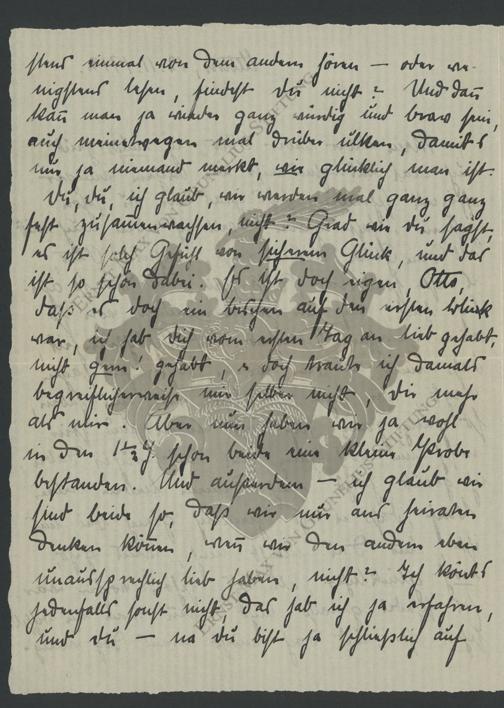 stens einmal von dem andern hören – oder we-
nigstens lesen, findest du nicht? Und dan̄
kan̄ man ja wieder ganz ruhig und brav sein,
auch meinetwegen mal drüber ulken, damits
nur ja niemand merkt, wie glücklich man ist.
Du, du, ich glaub, wir werden mal ganz ganz
fest zusam̄enwachsen, nicht? Grad wie du sagst,
es ist solch Gefühl von sicherem Glück, und das
ist so schön dabei. Es ist doch eigen, Otto,
daß es doch ein bischen auf den ersten Blick
war, ich hab dich vom ersten Tag an lieb gehabt,
nicht gern gehabt, u doch traute ich damals
begreiflicherweise mir selber nicht, dir mehr
als mir. Aber nun haben wir ja wohl
in den 1½ J. schon beide eine kleine Probe
bestanden. Und außerdem – ich glaub wir
sind beide so, daß wir nur ans heiraten
denken kön̄en, wen̄ wir den andern eben
unaussprechlich lieb haben, nicht? Ich kön̄ts
jedenfalls sonst nicht das hab ich ja erfahren,
und du – na du bist ja schließlich auf
ERNST MAX VON GRUNELIUS-STIFTUNG